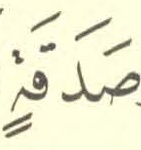 صَدَقَةٍ